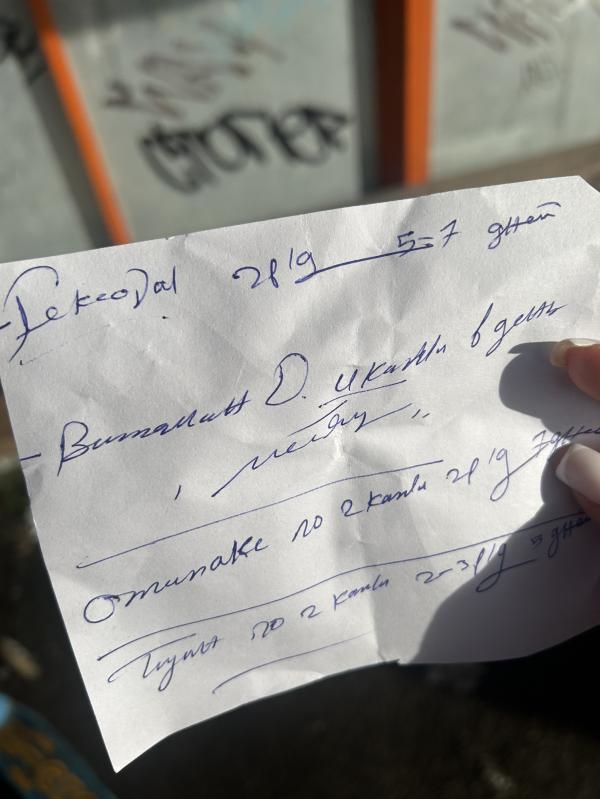 - Гексодал 2р/д 5-7 дней
- Витамин D. 4 капли в день
Отипакс по 2 капли 2р/д 7 дней
по 2 капли 2-3р/д 5 дней